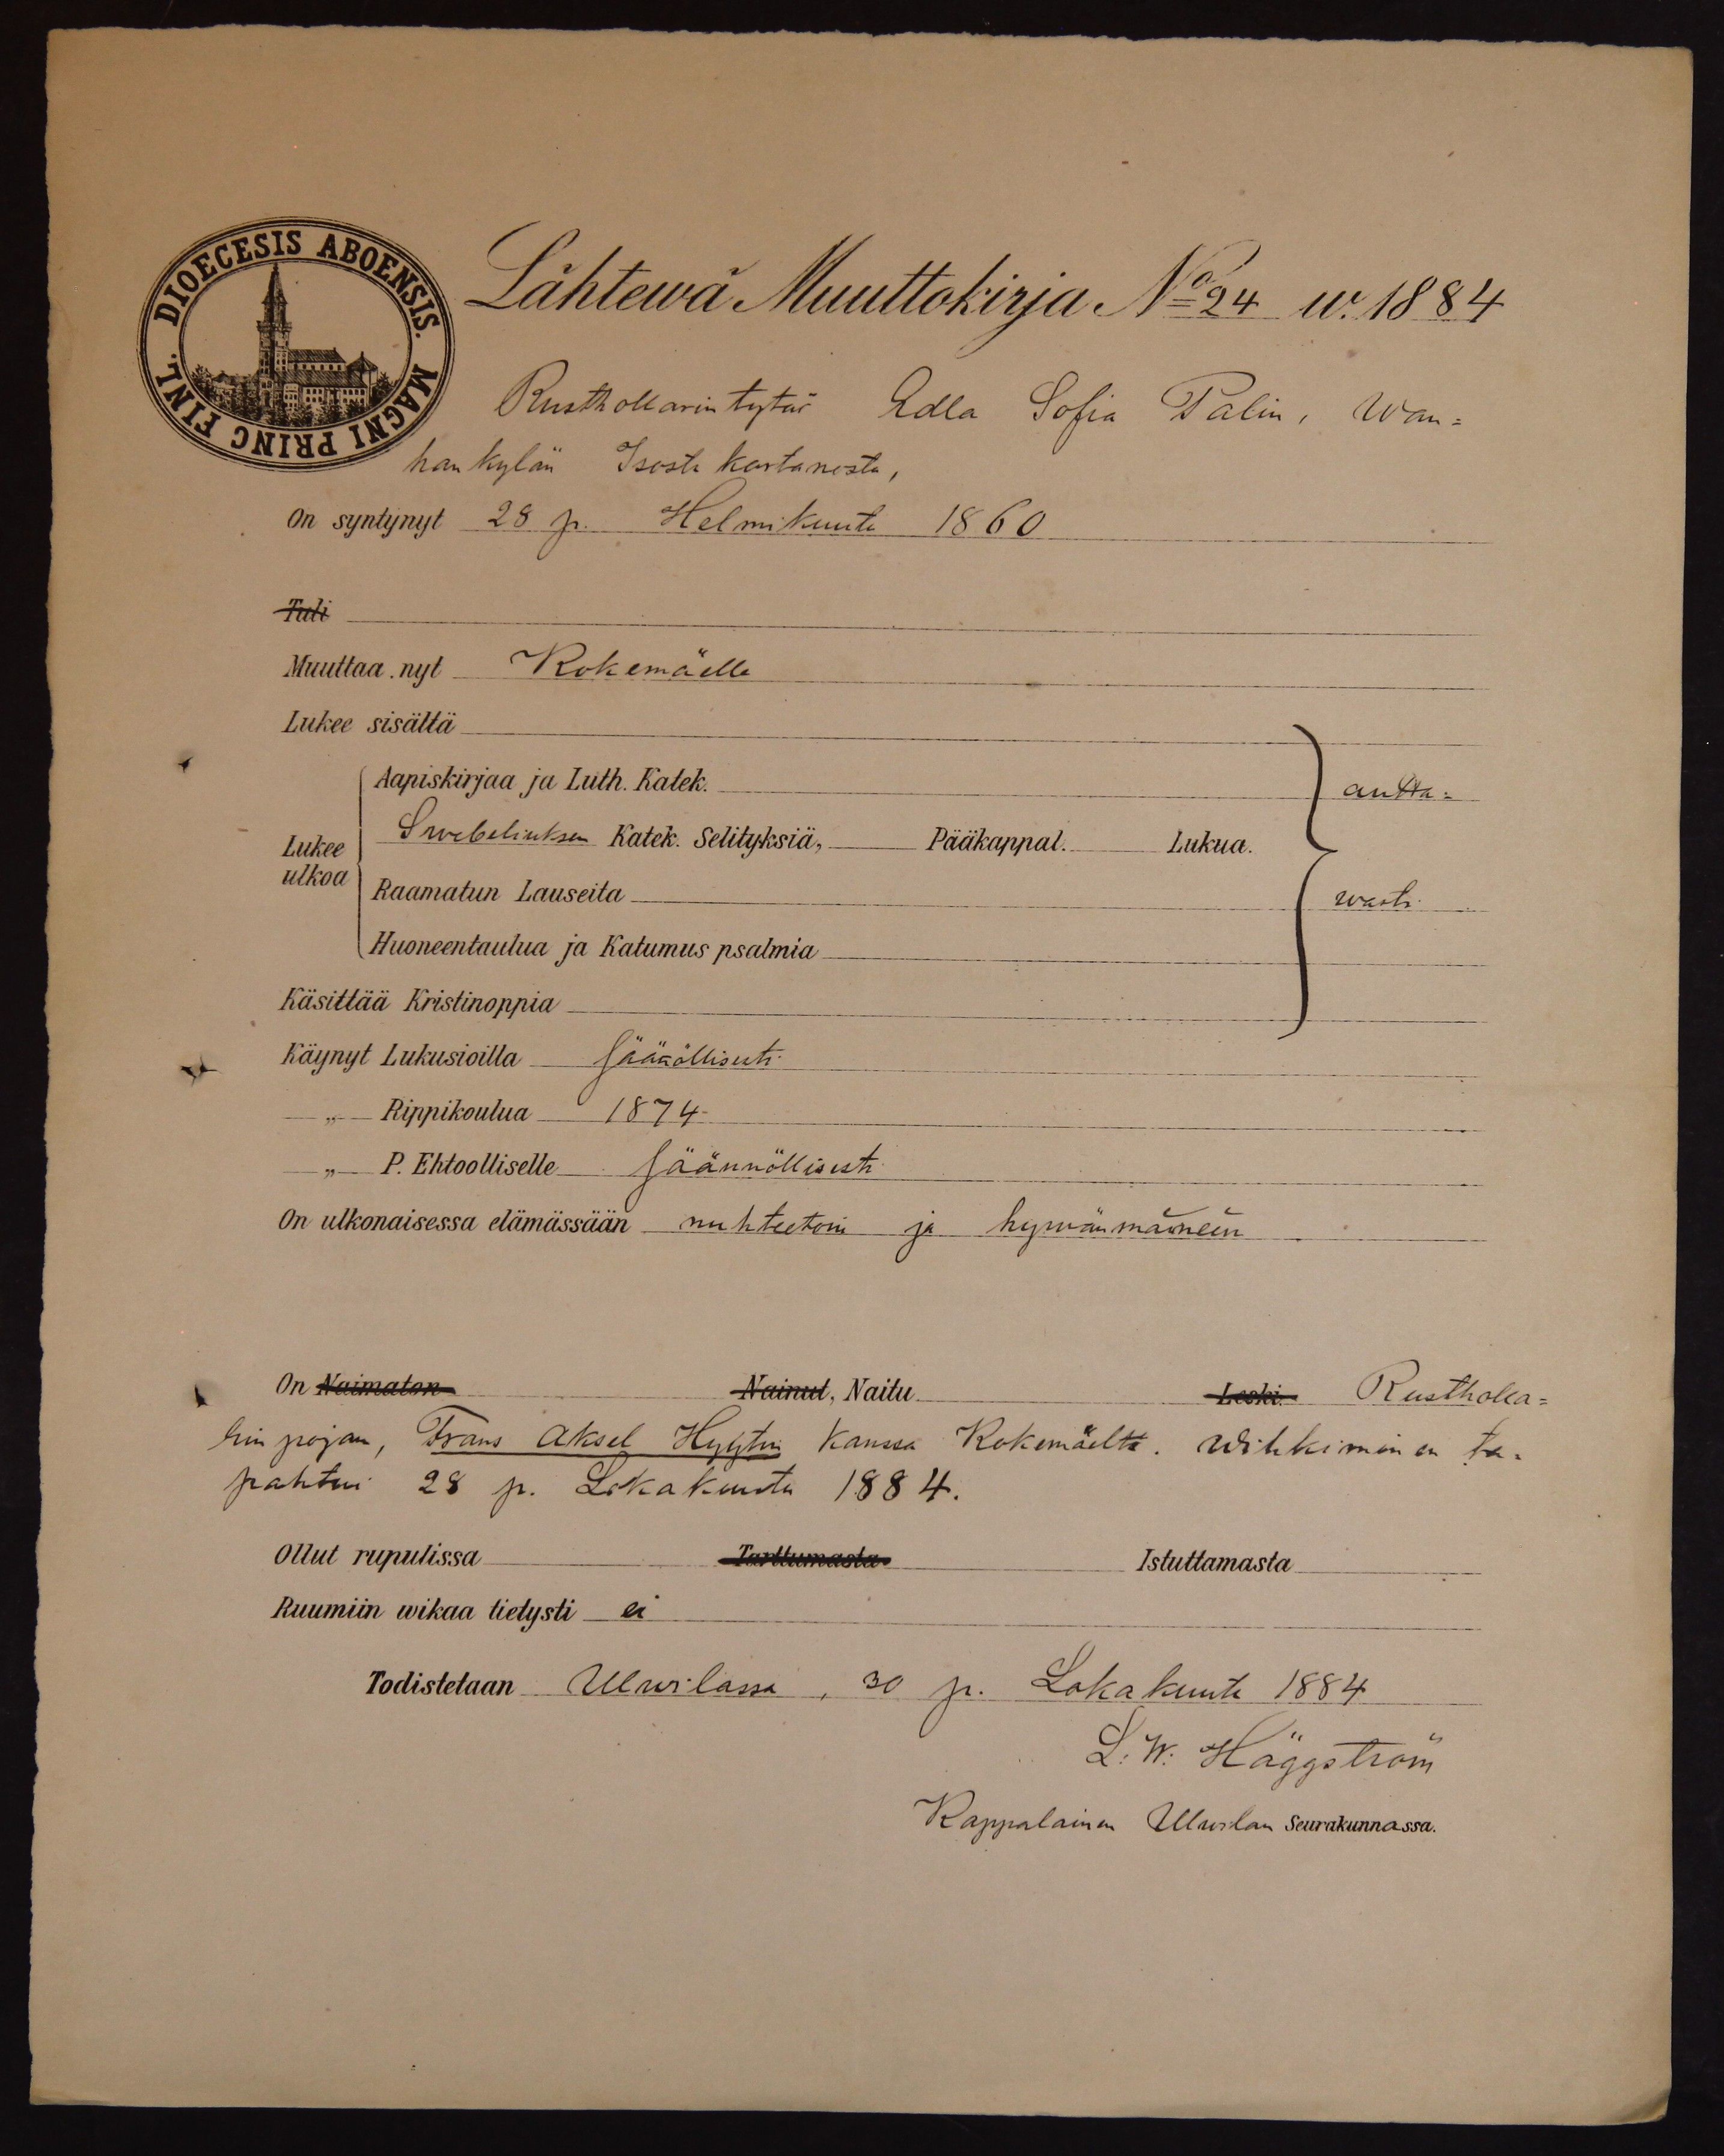 DIOECESIS ABOENSIS. MAGNI PRINC FINL.
Lähtewä Muuttokirja No 24 w. 1884
Rusthollarin tytär Edla Sofia Palin, Wan=
hankylän Isosta kartanosta,
On syntynyt 28 p. Helmikuuta 1860
Tuli
Muuttaa nyt Kokemäelle
Lukee sisältä
Aapiskirjaa ja Luth. Katek. autta=
Lukee ulkoa Swebeliuksen Katek. Selityksiä, Pääkappal. Lukua.
Raamatun Lauseita wasti.
Huoneentaulua ja Katumus psalmia
Käsittää Kristinoppia
Käynyt Lukusioilla säännöllisesti
„ Rippikoulua 1874
„ P. Ehtoolliselle säännöllisesti
On ulkonaisessa elämässään nuhteetoin ja hywänmaineen
On Naimaton Nainut, Naitu Leski. Rustholla=
rin pojan, Frans Aksel Hyytin kanssa Kokemäeltä. Wihkiminen ta=
pahtui 28 p. Lokakuuta 1884.
Ollut rupulissa Tarttumasta Istuttamasta
Ruumiin wikaa tietysti ei
Todistetaan Ulwilassa, 30 p. Lokakuuta 1884
L. W. Häggström
Kappalainen Ulwilan Seurakunnassa.